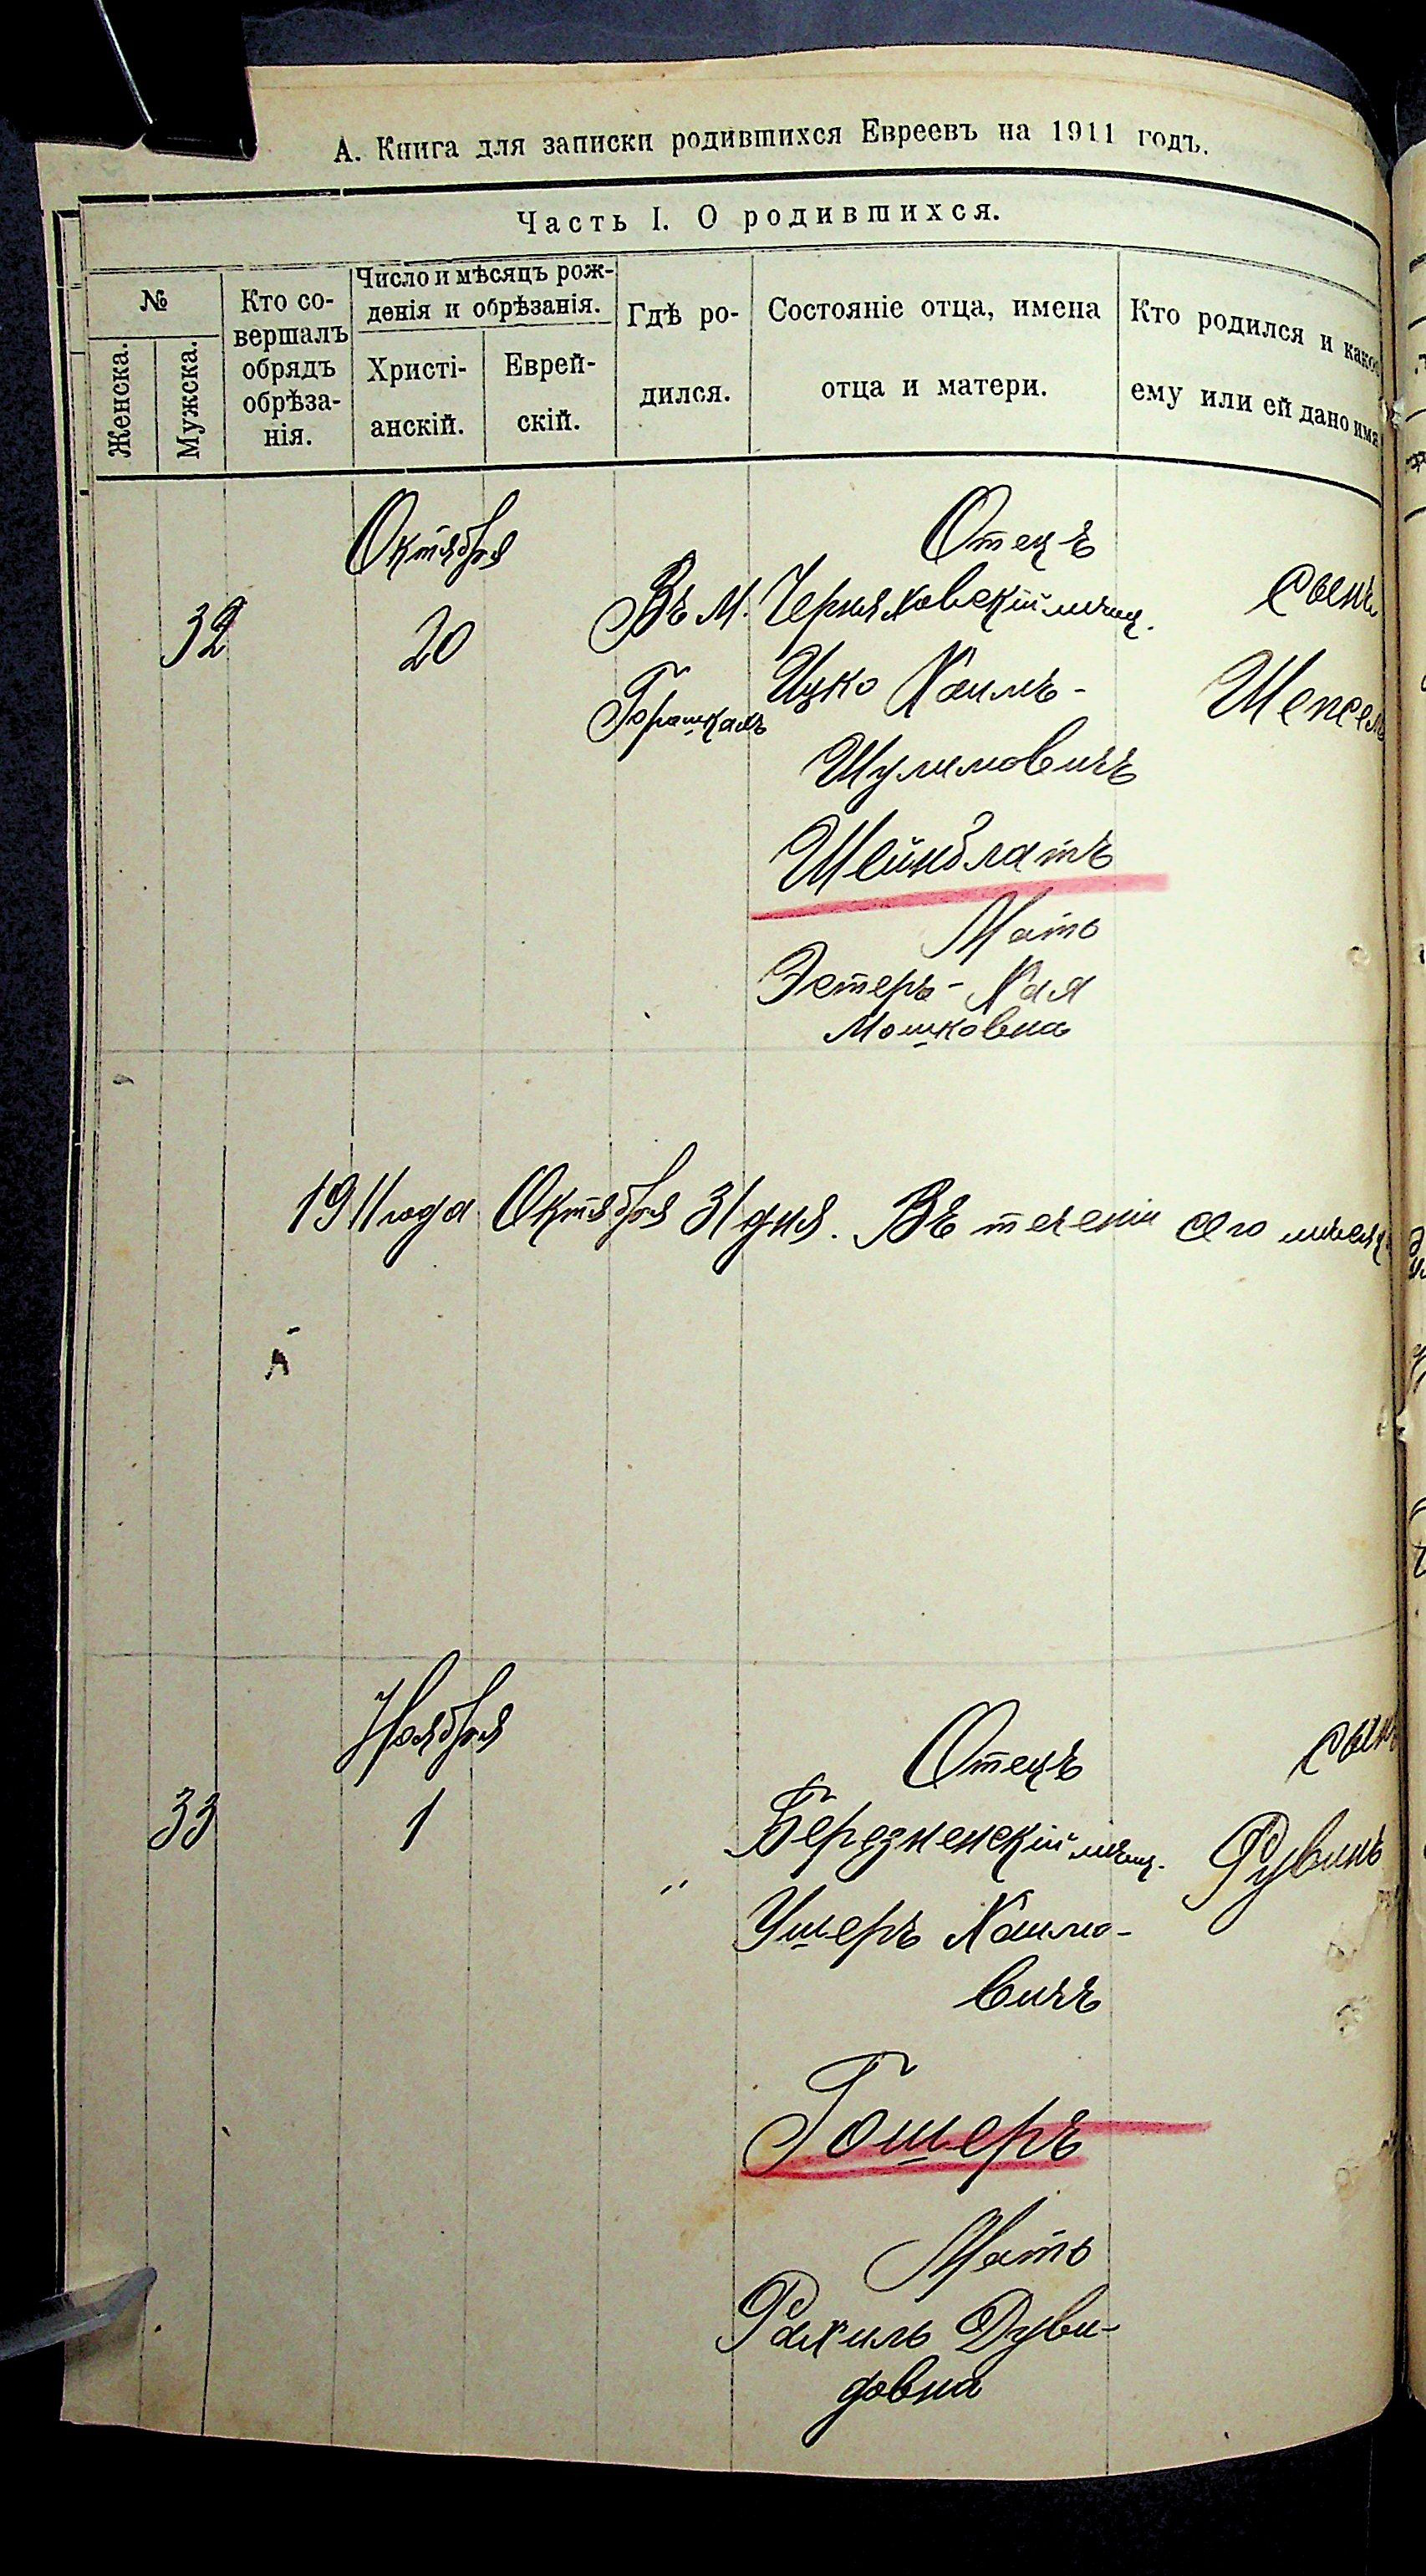 А. Книга для записки родившихся Евреевъ на 1911 годъ.
Часть I. О родившихся.
№
Женска.
Мужска.
Кто со-
вершалъ
обрядъ
обрѣза-
нія.
Число и мѣсяцъ рож-
денія и обрѣзанія.
Христі-
анскій.
Еврей-
скій.
Гдѣ ро-
дился.
Состояніе отца, имена
отца и матери.
Кто родился и какое
ему или ей дано имя
32
Октября
20
Въ М.
Горошкахъ
Отецъ
Черняховскій мѣщ.
Ицко Хаимъ-
Шулимовичъ
Шейнблатъ
Мать
Эстеръ-Хая
Мошковна
сынъ
Шепсель
1911 года Октября 31 дня. Въ теченіи сего мѣсяц
33
Ноября
1
"
Отецъ
Березненскій мѣщ.
Ушеръ Хаимо-
вичъ
Гошеръ
Мать
Рахиль Дуви-
довна
сынъ
Рувинъ